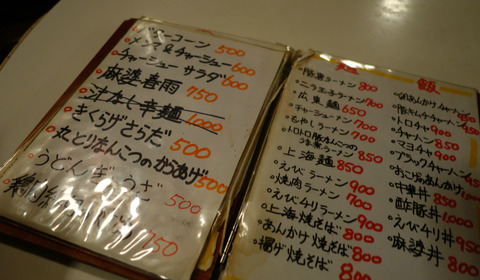 バーコーン 500
メンマ&チャーシュー 600
チャーシューサラダ 600
麻婆春雨 750
汁なし辛麺 1000
きくらげさらだ 500
丸とりなんこつのからあげ 500
うどんば 500
750
麺 飯
ラーメン 800
ニラ玉子ラーメン 700
広東麺 650
チャーシューメン
もやしラーメン 700
トロトロ豚なんこつの
850
上海麺 850
えびラーメン 900
焼肉ラーメン 700
えびチリラーメン 900
上海焼そば 800
あんかけ焼そば 800
揚げ焼そば 800
あんかけチャーハン 950
豚キムチチャーハン 950
トロチャ 900
チャーハン 850
マヨチャ 900
ブラックチャーハン
おこげあんかけ
中華丼 850
酢豚丼 1,000
えびチリ丼 950
麻婆丼 800